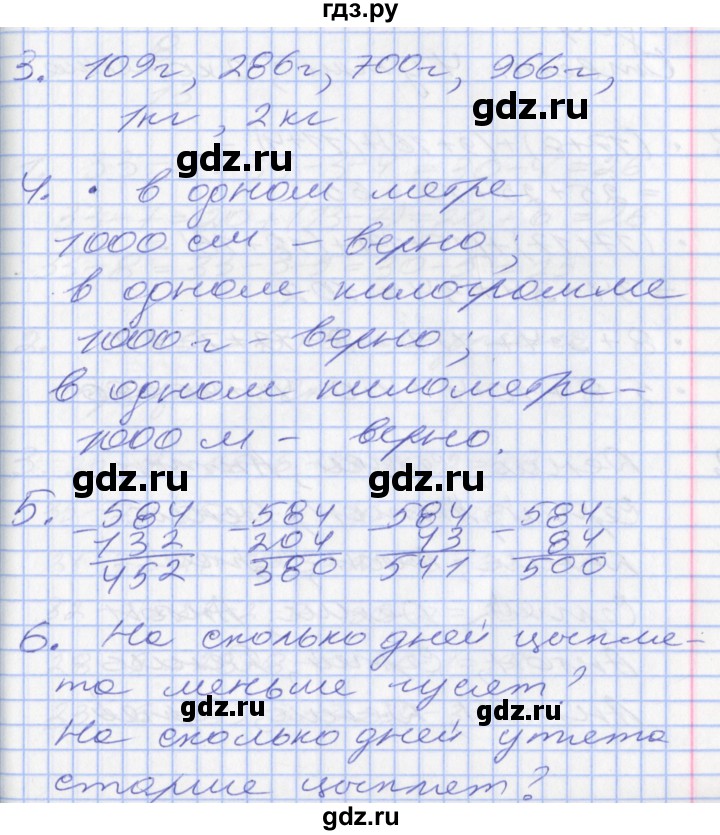 гдз.ру
3. 109г, 286г, 700г, 966г,
1кг, 2кг
gdz.ru
gdz.ru
4. • в одном метре
1000 см – верно;
в одном килограмме
1000 г – верно;
в одном километре –
1000 м – верно.
gdz.ru
gdz.ru
5. – 584 – 584 – 584 – 584
132 204 43 84
452 380 541 500
6. На сколько дней цыпля-
та меньше гусят?
gdz.ru
gdz.ru
На сколько дней утята
старше цыплят?
gdz.ru